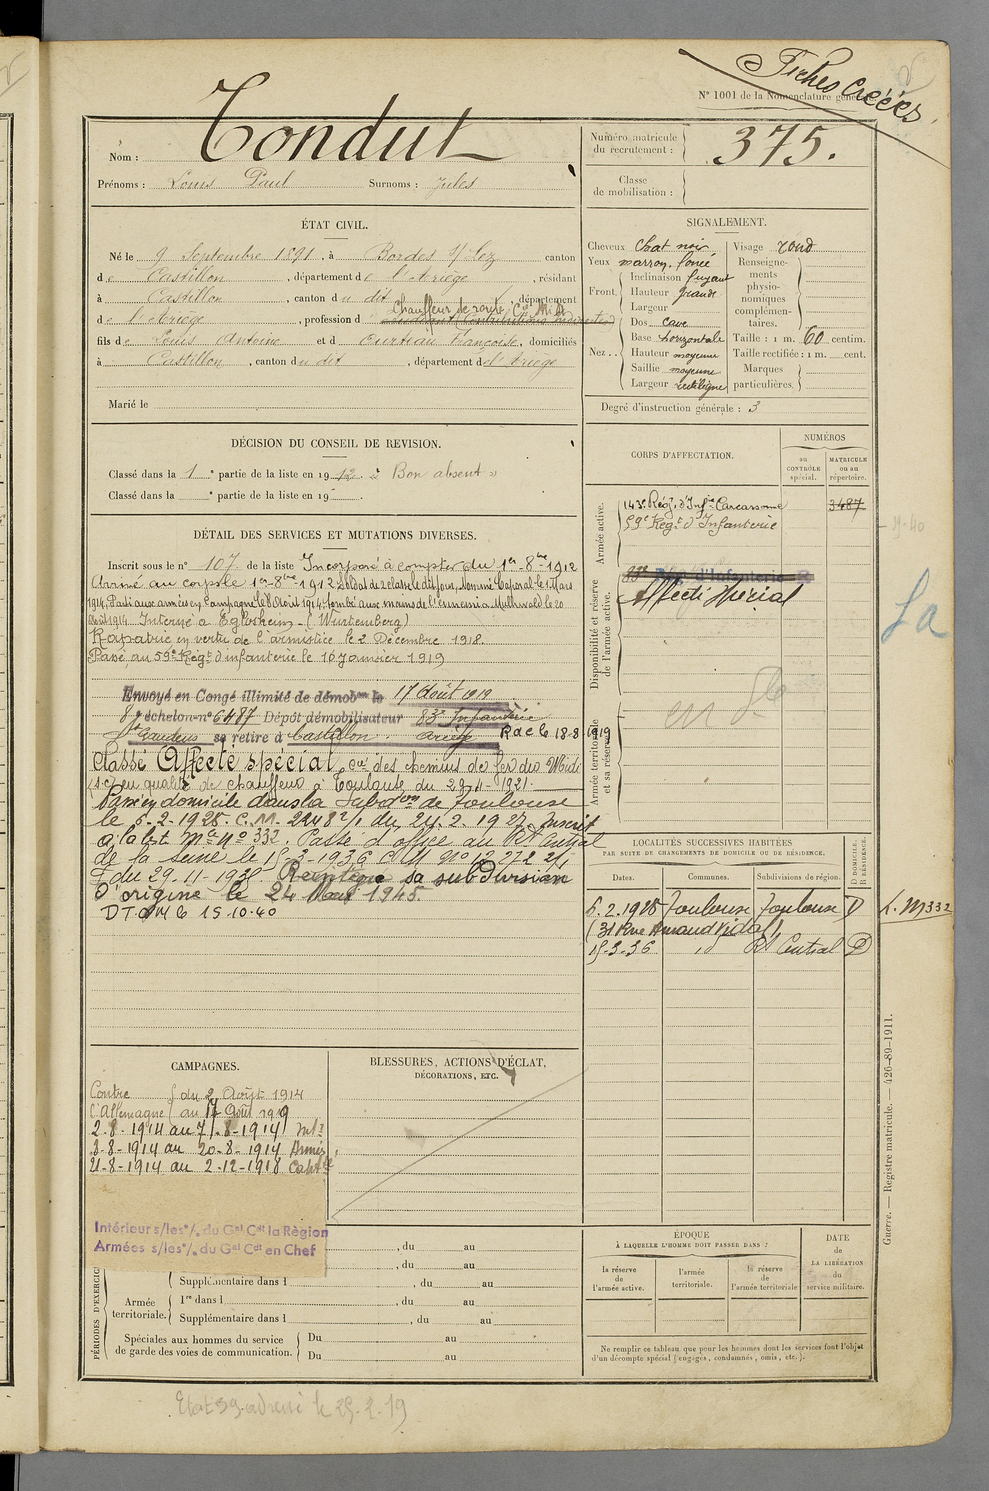 Fiches créées
N° 1001 de la Nomenclature générale.
Nom : Tondut
Prénoms : Louis Paul Surnoms : Jules
Numéro matricule du recrutement : 375.
Classe de mobilisation :
ÉTAT CIVIL.
Né le 9 Septembre 1891, à Bordes s/ Lez canton
de Castillon, département de l'Ariège, résidant
à Castillon, canton du dit, département
Chauffeur de route Cie Midi
de l'Ariège, profession d'étudiant (Contributions indirectes)
fils de Louis Antoine et d Françoise, domiciliés
à Castillon, canton du dit, département de l'Ariège
Marié le
SIGNALEMENT.
Cheveux chat noir
Yeux marron foncé
Front. Inclinaison fuyant
Hauteur grande
Largeur
Nez... Dos cave
Base horizontale
Hauteur moyenne
Saillie moyenne
Largeur
Visage rond
Renseignements physionomiques complémentaires.
Taille : 1 m. 60 centim.
Taille rectifiée : 1 m. cent.
Marques particulières.
Degré d'instruction générale : 3
DÉCISION DU CONSEIL DE REVISION.
Classé dans la 1e partie de la liste en 1912 « Bon absent »
Classé dans la e partie de la liste en 19
DÉTAIL DES SERVICES ET MUTATIONS DIVERSES.
Inscrit sous le n° 107 de la liste Incorporé à compter du 1er 8bre 1912
Arrivé au corps le 1er 8bre 1912 Soldat de 2e classe le dit jour, Nommé Caporal le 1 Mars
1914, Parti aux armées en campagne le 8 Août 1914, tombé aux mains de l'ennemi à le 20
Août 1914 Interné à Eglosheim - (Wurtemberg)
Rapatrié en vertu de l'armistice le 2 Décembre 1918.
Passé au 59e Régt d'infanterie le 16 Janvier 1919
Envoyé en Congé illimité de démobon le 17 Août 1919
8e échelon n° 6487 Dépôt démobilisateur 83e Infanterie
St Gaudens se retire à Castillon. Ariège R d c le 18-8 1919
Classé Affecté spécial, Cie des chemins de fer du Midi
en qualité de chauffeur à Toulouse du 29-4-1921.
Passé en domicile dans la Subdon de Toulouse
le 5-2-1928. C.M. 2248 2/1 du 24-2-1927. Inscrit
à la lst Mle n° 332. Passé d'office au Rt Central
de la Seine le 15-3-1936 C M N° 2/1
du 29-11-1935. Réintègre sa subdivision
d'origine le 24 Mai 1945.
15-10-40
CORPS D'AFFECTATION.
NUMÉROS
au CONTRÔLE spécial.
MATRICULE ou au répertoire.
Armée active.
143e Rég. d'Infie Carcassonne 3487
59e Régt d'Infanterie
Disponibilité et réserve de l'armée active.
83e Régt d'Infanterie
Affecté Spécial
Armée territoriale et sa réserve.
19-40
La
LOCALITÉS SUCCESSIVES HABITÉES
PAR SUITE DE CHANGEMENTS DE DOMICILE OU DE RÉSIDENCE.
Dates. Communes. Subdivisions de région. D DOMICILE. R RÉSIDENCE.
5.2.1928 Toulouse Toulouse D
(31 Rue Arnaud Vidal)
15-3-36 " Rt Central D
L. M 332
CAMPAGNES.
Contre l'Allemagne du 2 Août 1914
au 17 Août 1919
2-8-1914 au 7-8-1914 Intr
8-8-1914 au 20-8-1914 Armées
21-8-1914 au 2-12-1918 Captté
Intérieur s/les o/. du Gal Cdt la Région
Armées s/les o/. du Gal Cdt en Chef
BLESSURES, ACTIONS D'ÉCLAT,
DÉCORATIONS, ETC.
PÉRIODES D'EXERCICES
, du au
, du au
Supplémentaire dans l , du au
Armée territoriale. 1re dans l , du au
Supplémentaire dans l , du au
Spéciales aux hommes du service de garde des voies de communication. Du au
Du au
ÉPOQUE
À LAQUELLE L'HOMME DOIT PASSER DANS :
la réserve de l'armée active.
l'armée territoriale.
la réserve de l'armée territoriale
DATE de LA LIBÉRATION du service militaire.
Ne remplir ce tableau que pour les hommes dont les services font l'objet
d'un décompte spécial (engagés, condamnés, omis, etc.).
Guerre. — Registre matricule. — 426-89-1911.
Etat 59. adressé le 25-2-19